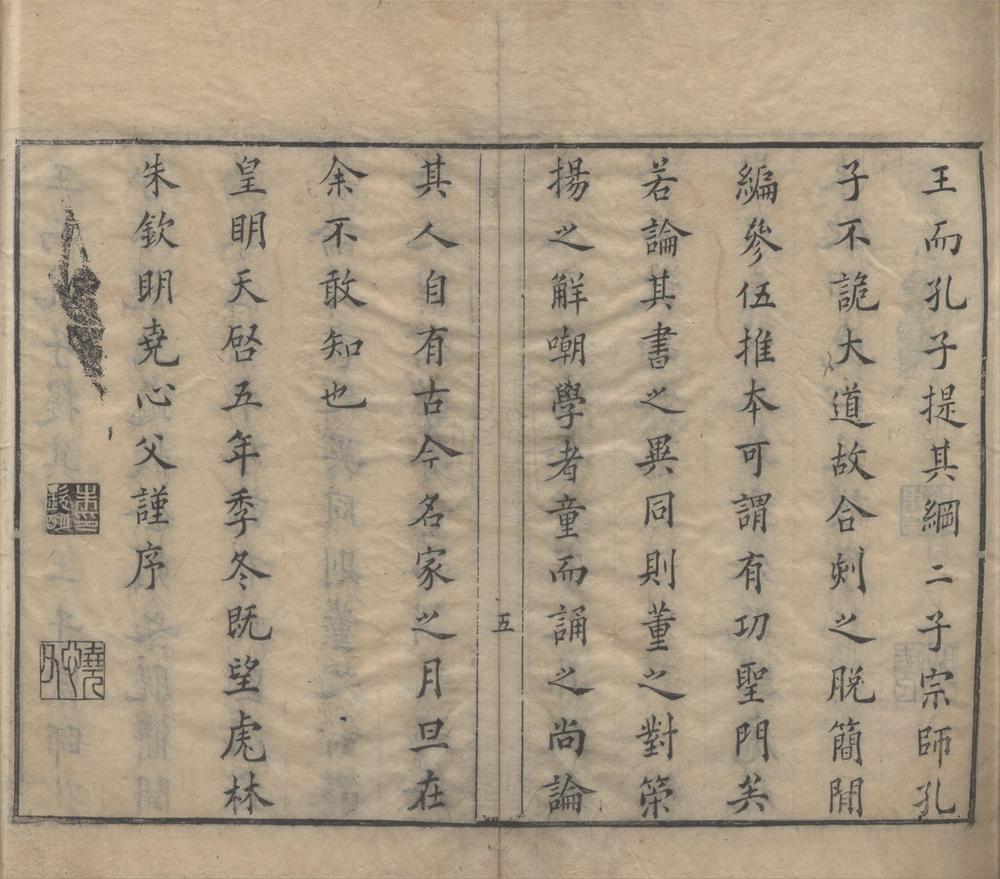 王而孔子提其綱二子宗師孔
子不詭大道故合刻之脫簡閒
編參伍推本可謂有功聖門矣
若論其書之異同則董之對策
揚之解嘲學者童而誦之尚論
五
其人自有古今名家之月旦在
余不敢知也
皇明天啓五年季冬既望虎林
朱欽明堯心父謹序
朱印欽明
堯心